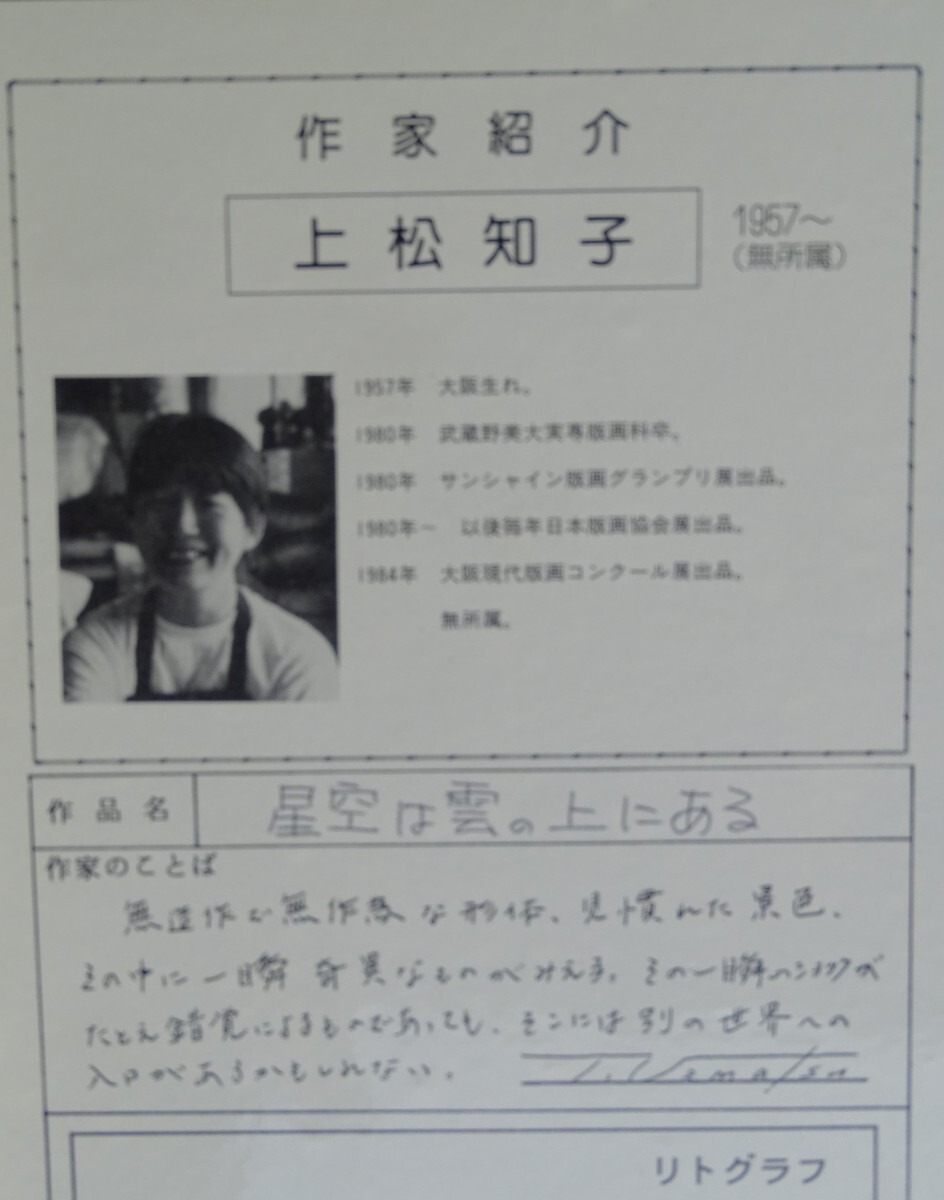 作家紹介
上松知子
1957〜
（無所属）
1957年 大阪生れ。
1980年 武蔵野美大実専版画科卒。
1980年 サンシャイン版画グランプリ展出品。
1980年〜 以後毎年日本版画協会展出品。
1984年 大阪現代版画コンクール展出品。
無所属。
作品名
星空は雲の上にある
作家のことば
無造作で無作為な形体、見慣れた景色、
その中に一瞬 奇異なものがみえる。その一瞬の
たとえ錯覚によるものであっても、そこには別の世界への
入口があるかもしれない。
T. Uematsu
リトグラフ